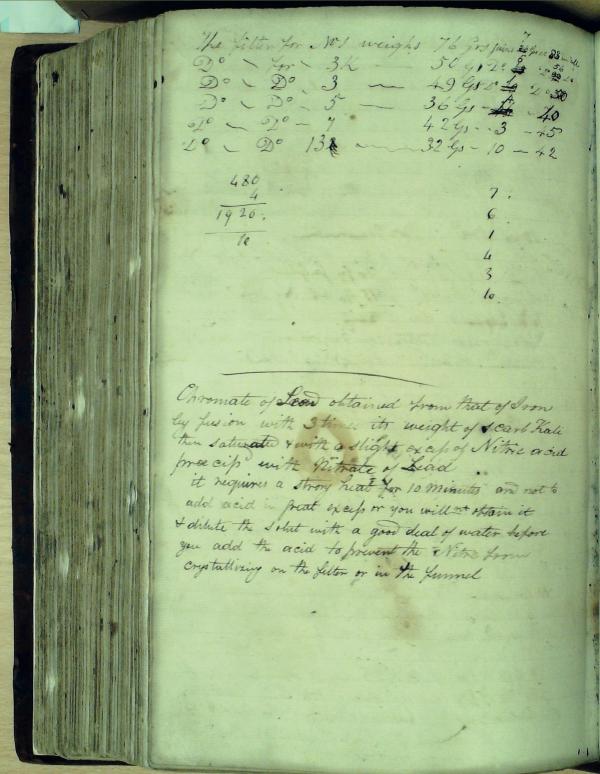 The filter for No 1 weighs 76 Grs
Do ~ for ~ 3K 50 Gr Do
Do ~ Do 3 — 49 Grs Do Do 30
Do ~ Do 5 — 36 Gs - 40
Do ~ Do - 7 42 Gs - 3 - 45
Do ~ Do 13 — 32 Gs - 10 - 42
480
4
1920
7
6
1
4
3
10
Chromate of Lead obtained from that of Iron
by fusion with 3 times its weight of scarb Kali
then saturate & with a slight excess of Nitric acid
precip with Nitrate of Lead
it requires a strong heat for 10 Minutes and not to
add acid in great excess or you will not obtain it
& dilute the solut with a good deal of water before
you add the acid to prevent the Nitre from
crystallizing on the filter or in the funnel